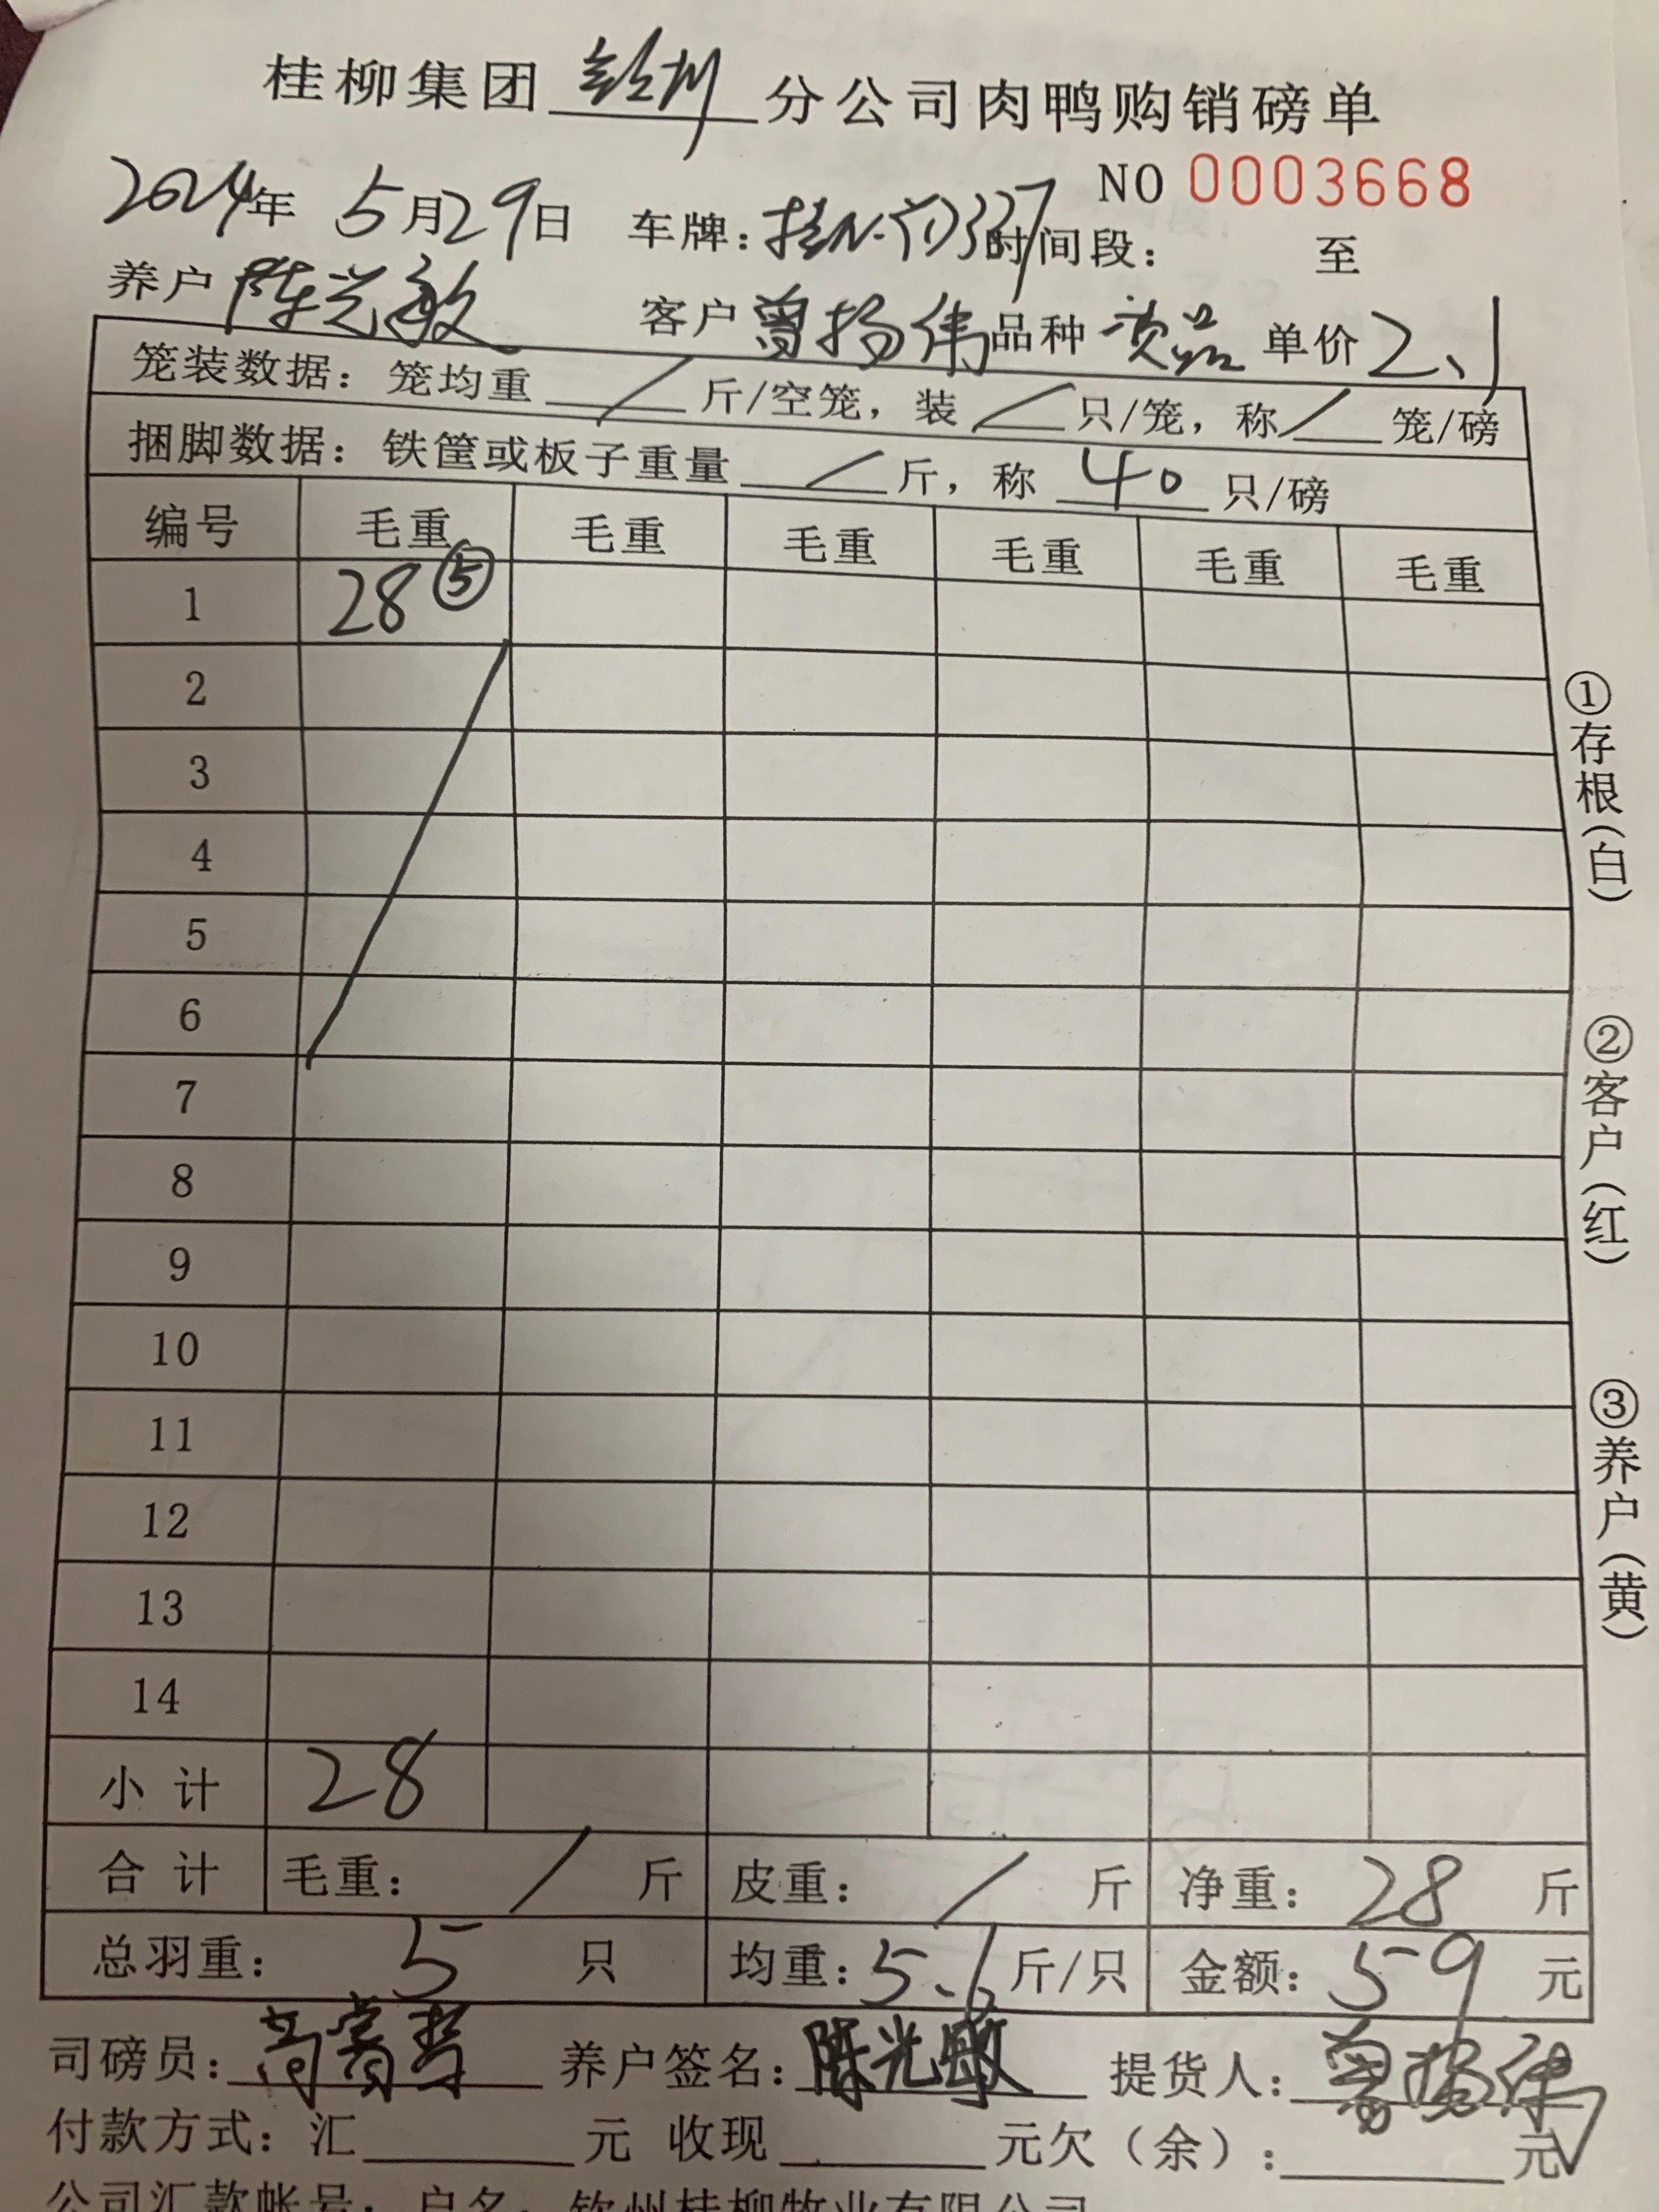 桂柳集团钦州分公司肉鸭购销磅单
NO 0003668
2024年 5月29日 车牌：桂N· D327 时间段： 至
养户 陈光敏 客户 曾扬伟 品种 次品 单价 2.1
笼装数据：笼均重 / 斤/空笼，装 / 只/笼，称 / 笼/磅
捆脚数据：铁筐或板子重量 / 斤，称 40 只/磅
编号 毛重 毛重 毛重 毛重 毛重 毛重
1 28 ⑤
2
3
4
5
6
7
8
9
10
11
12
13
14
小计 28
合计 毛重： / 斤 皮重： / 斤 净重：28 斤
总羽重： 5 只 均重：5.6 斤/只 金额：59 元
司磅员： 养户签名：陈光敏 提货人：曾扬伟
付款方式：汇 元 收现 元欠（余）： 元
公司汇款帐号：户名：钦州桂柳牧业有限公司
①存根（白）
②客户（红）
③养户（黄）